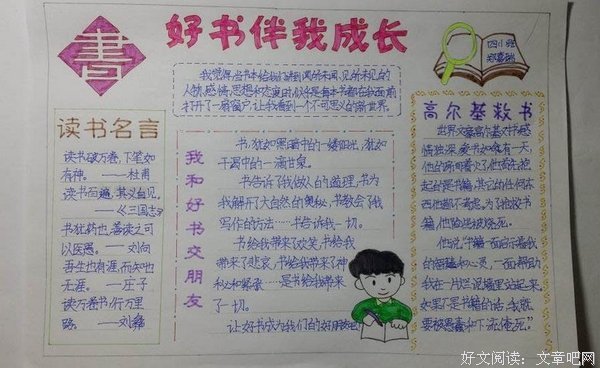 書
好书伴我成长
四(1)班
我觉得,当书本给我讲到闻所未闻,见所未见的
人物、感情、思想和态度时,似乎是每本书都在我面前
打开了一扇窗户,让我看到一个不可思议的新世界。
读书名言
读书破万卷,下笔如
有神。——杜甫
读书百遍,其义自见。
——《三国志》
书犹药也,善读之可
以医愚。——刘向
吾生也有涯,而知也
无涯。——庄子
读万卷书,行万里
路。——刘彝
我和好书交朋友
书,犹如黑暗中的一缕阳光,犹如
干渴中的一滴甘泉。
书告诉了我做人的道理,书为
我解开了大自然的奥秘,书教会了我
写作的方法……书告诉我一切。
书给我带来了欢笑,书给我
带来了悲哀,书给我带来了神
秘和紧张……是书给我带来
了一切。
让好书成为我们的好朋友吧!
高尔基救书
世界文豪高尔基对书感
情独深,爱书如命。有一天,
他的房间着火了,他首先抱
起的是书籍,其它的任何东
西他都不考虑。为了抢救书
籍,他险些被烧死。
他说:“书籍一面启示着我
的智慧和心灵,一面帮助
我在一片烂泥塘里站起来,
如果不是书籍的话,我就
要被愚蠢和下流淹死”
好文阅读:文章吧网